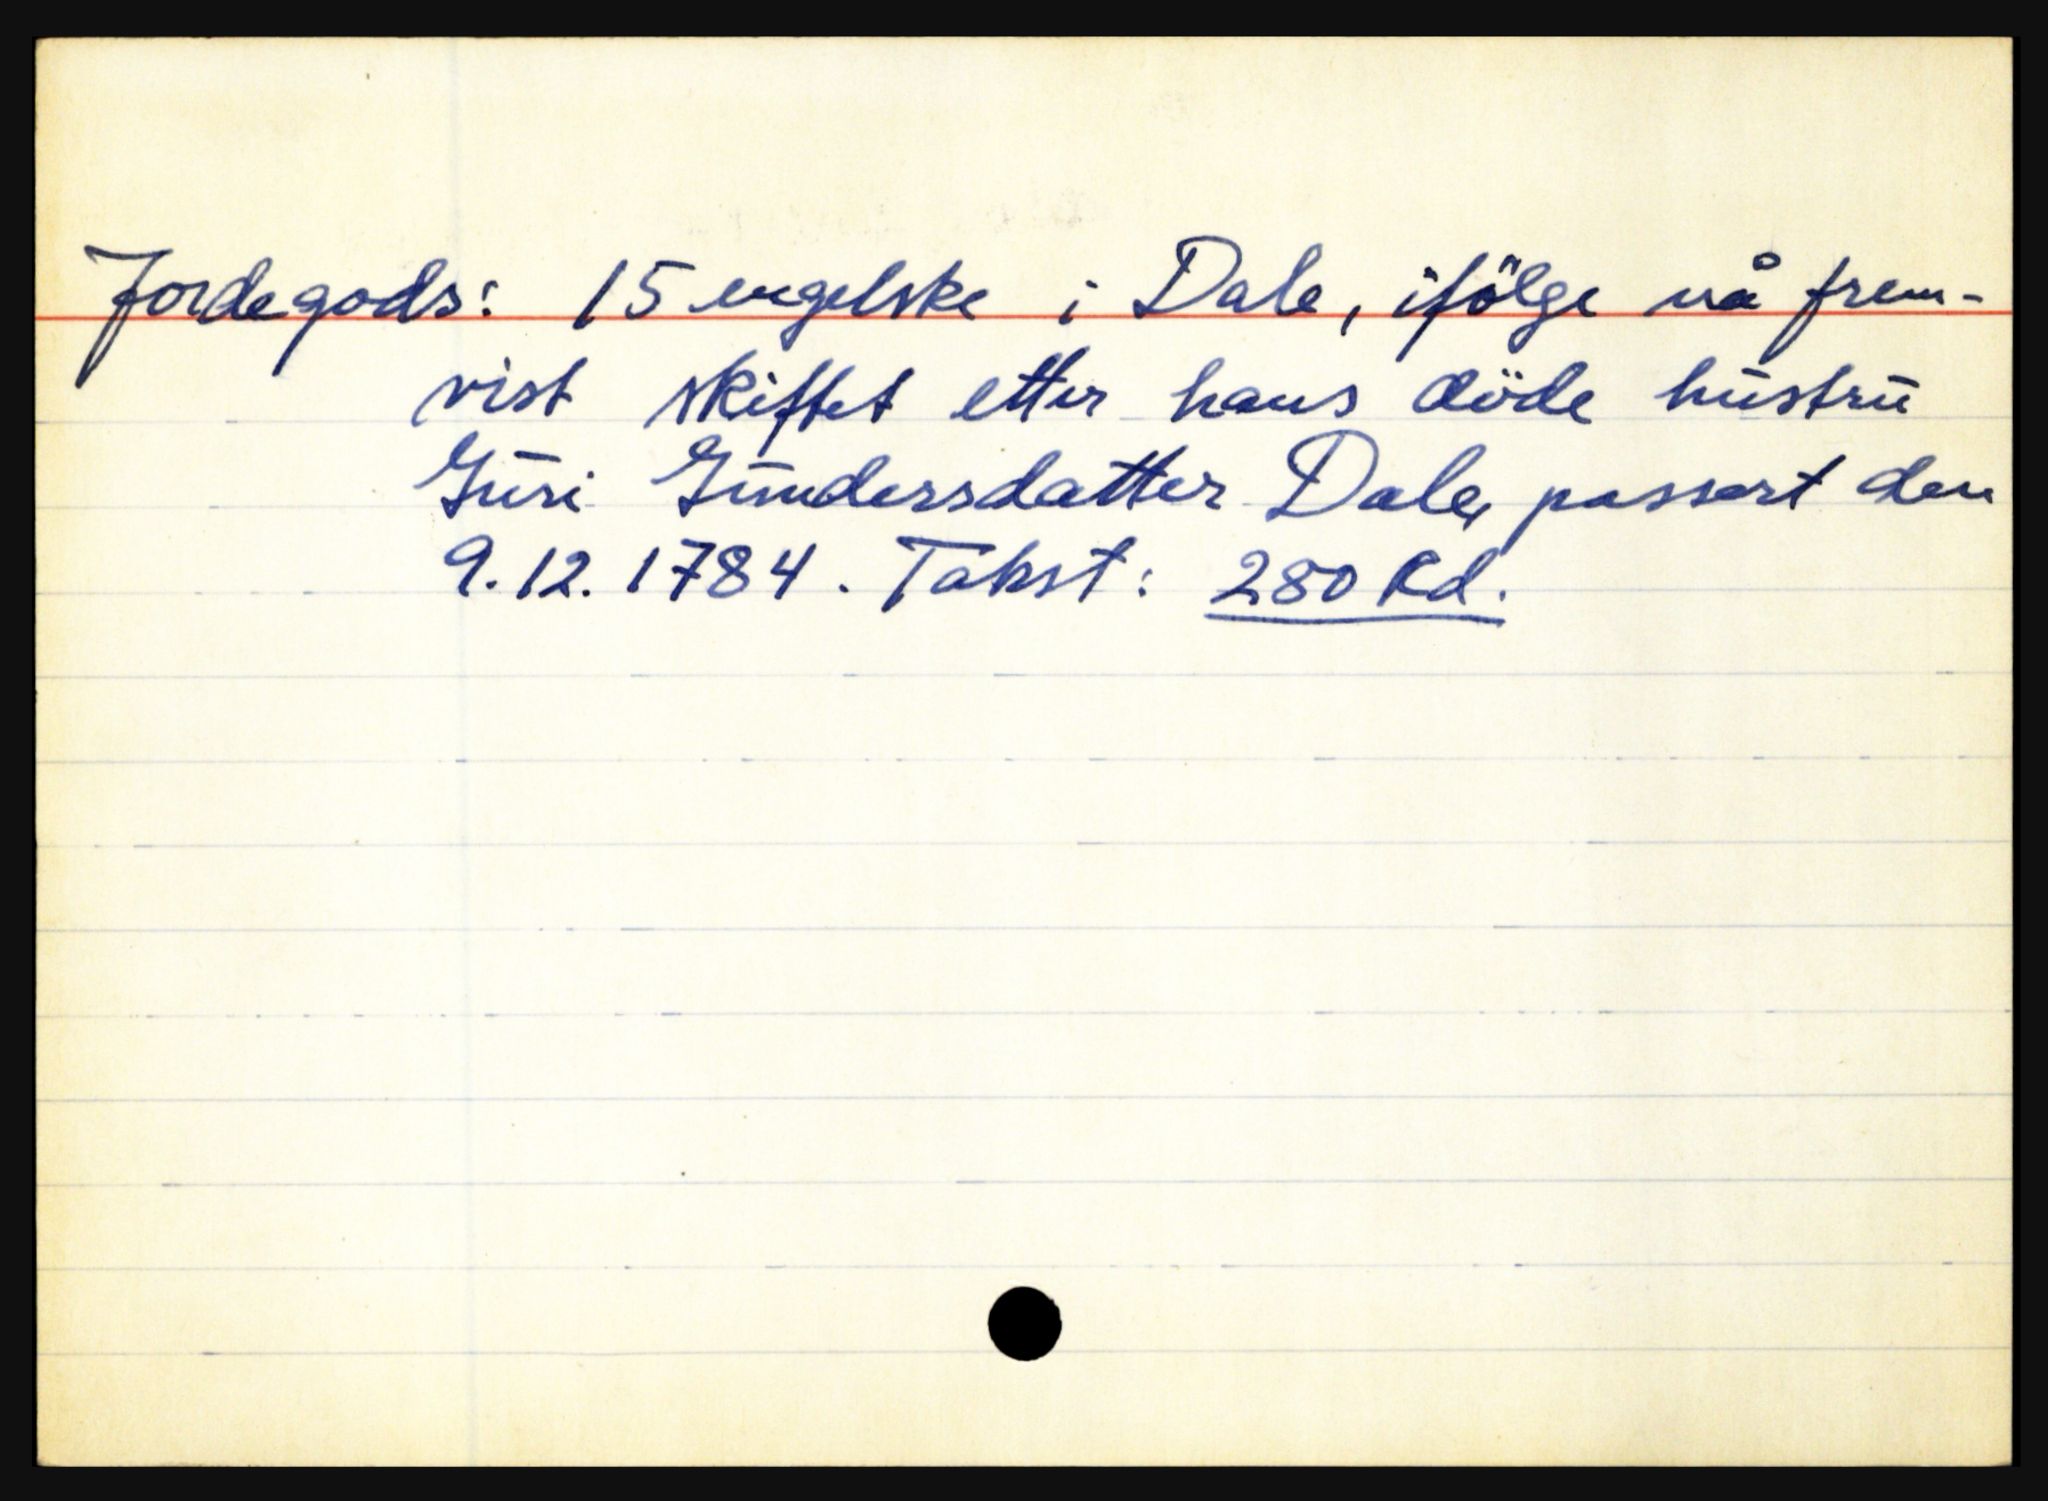 Jordegods: 15 engelske i Dale, ifölge nå frem-
vist skiftet etter hans döde hustru
Guri Gundersdatter Dale, passert den
9.12.1784. Takst: 280 Rd.